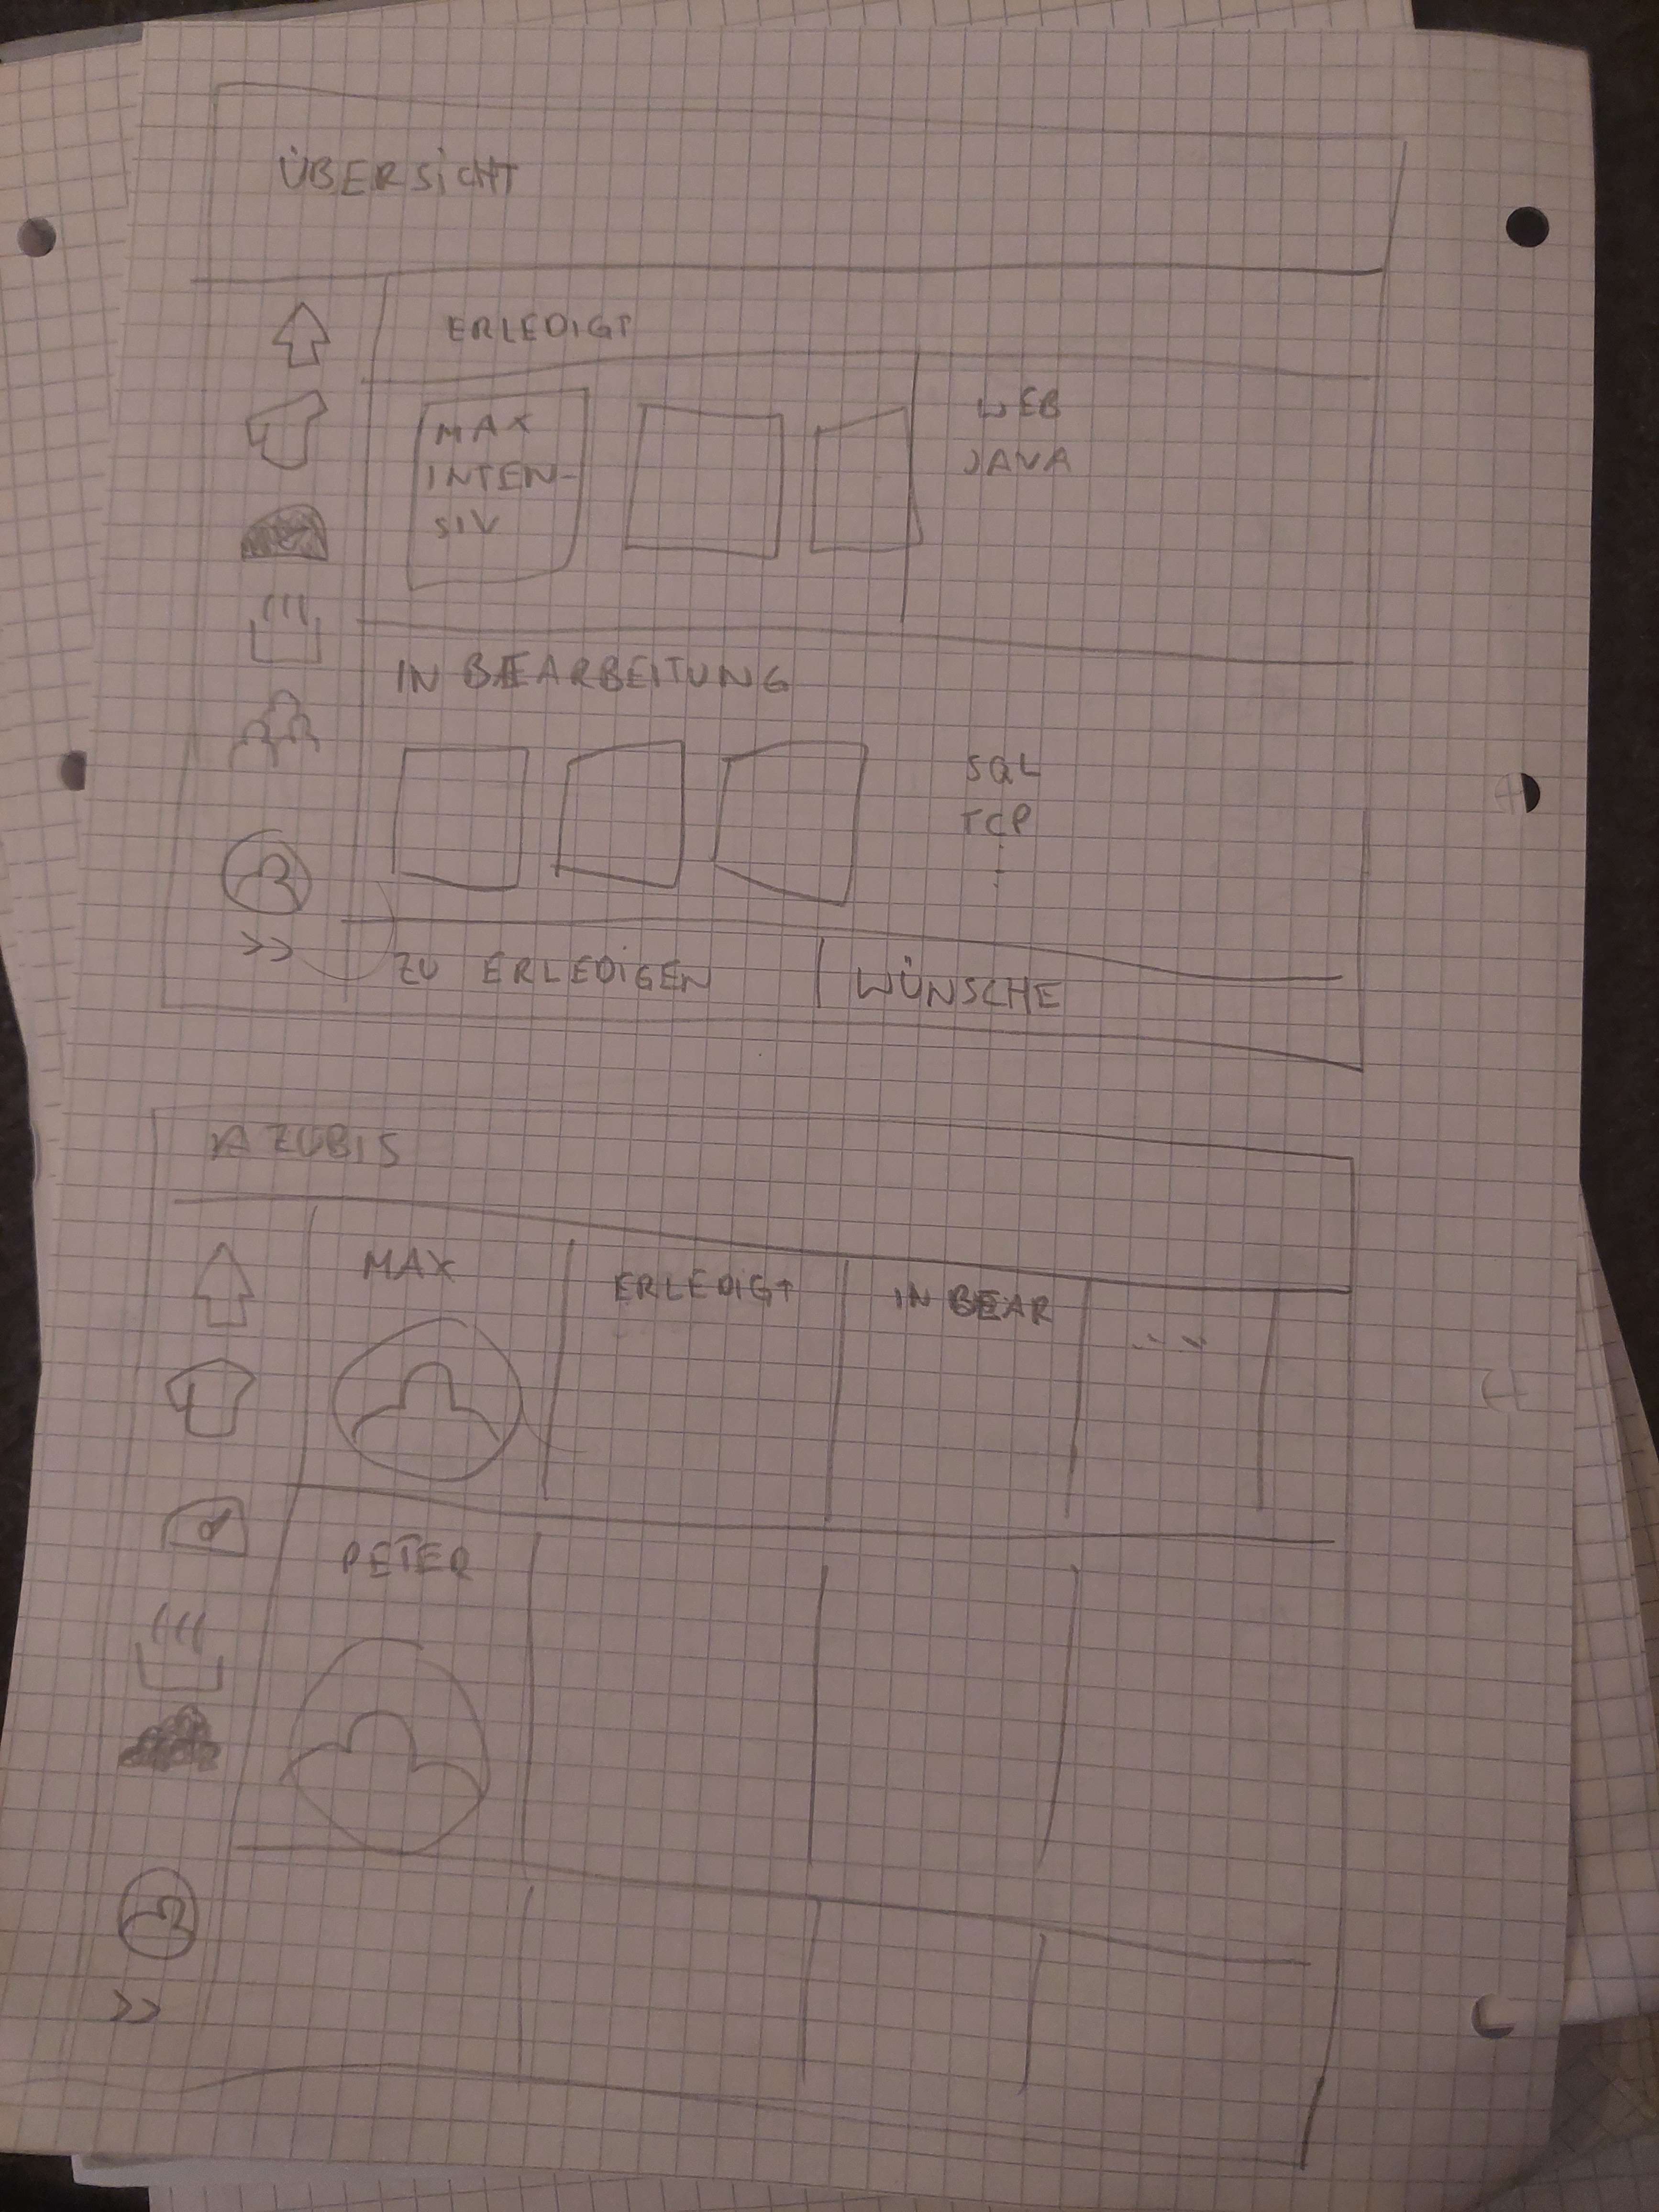 ÜBERSICHT
ERLEDIGT
MAX
INTEN-
SIV
WEB
JAVA
IN BEARBEITUNG
SQL
TCP
ZU ERLEDIGEN
WÜNSCHE
>>
AZUBIS
MAX
ERLEDIGT
IN BEAR
...
PETER
>>